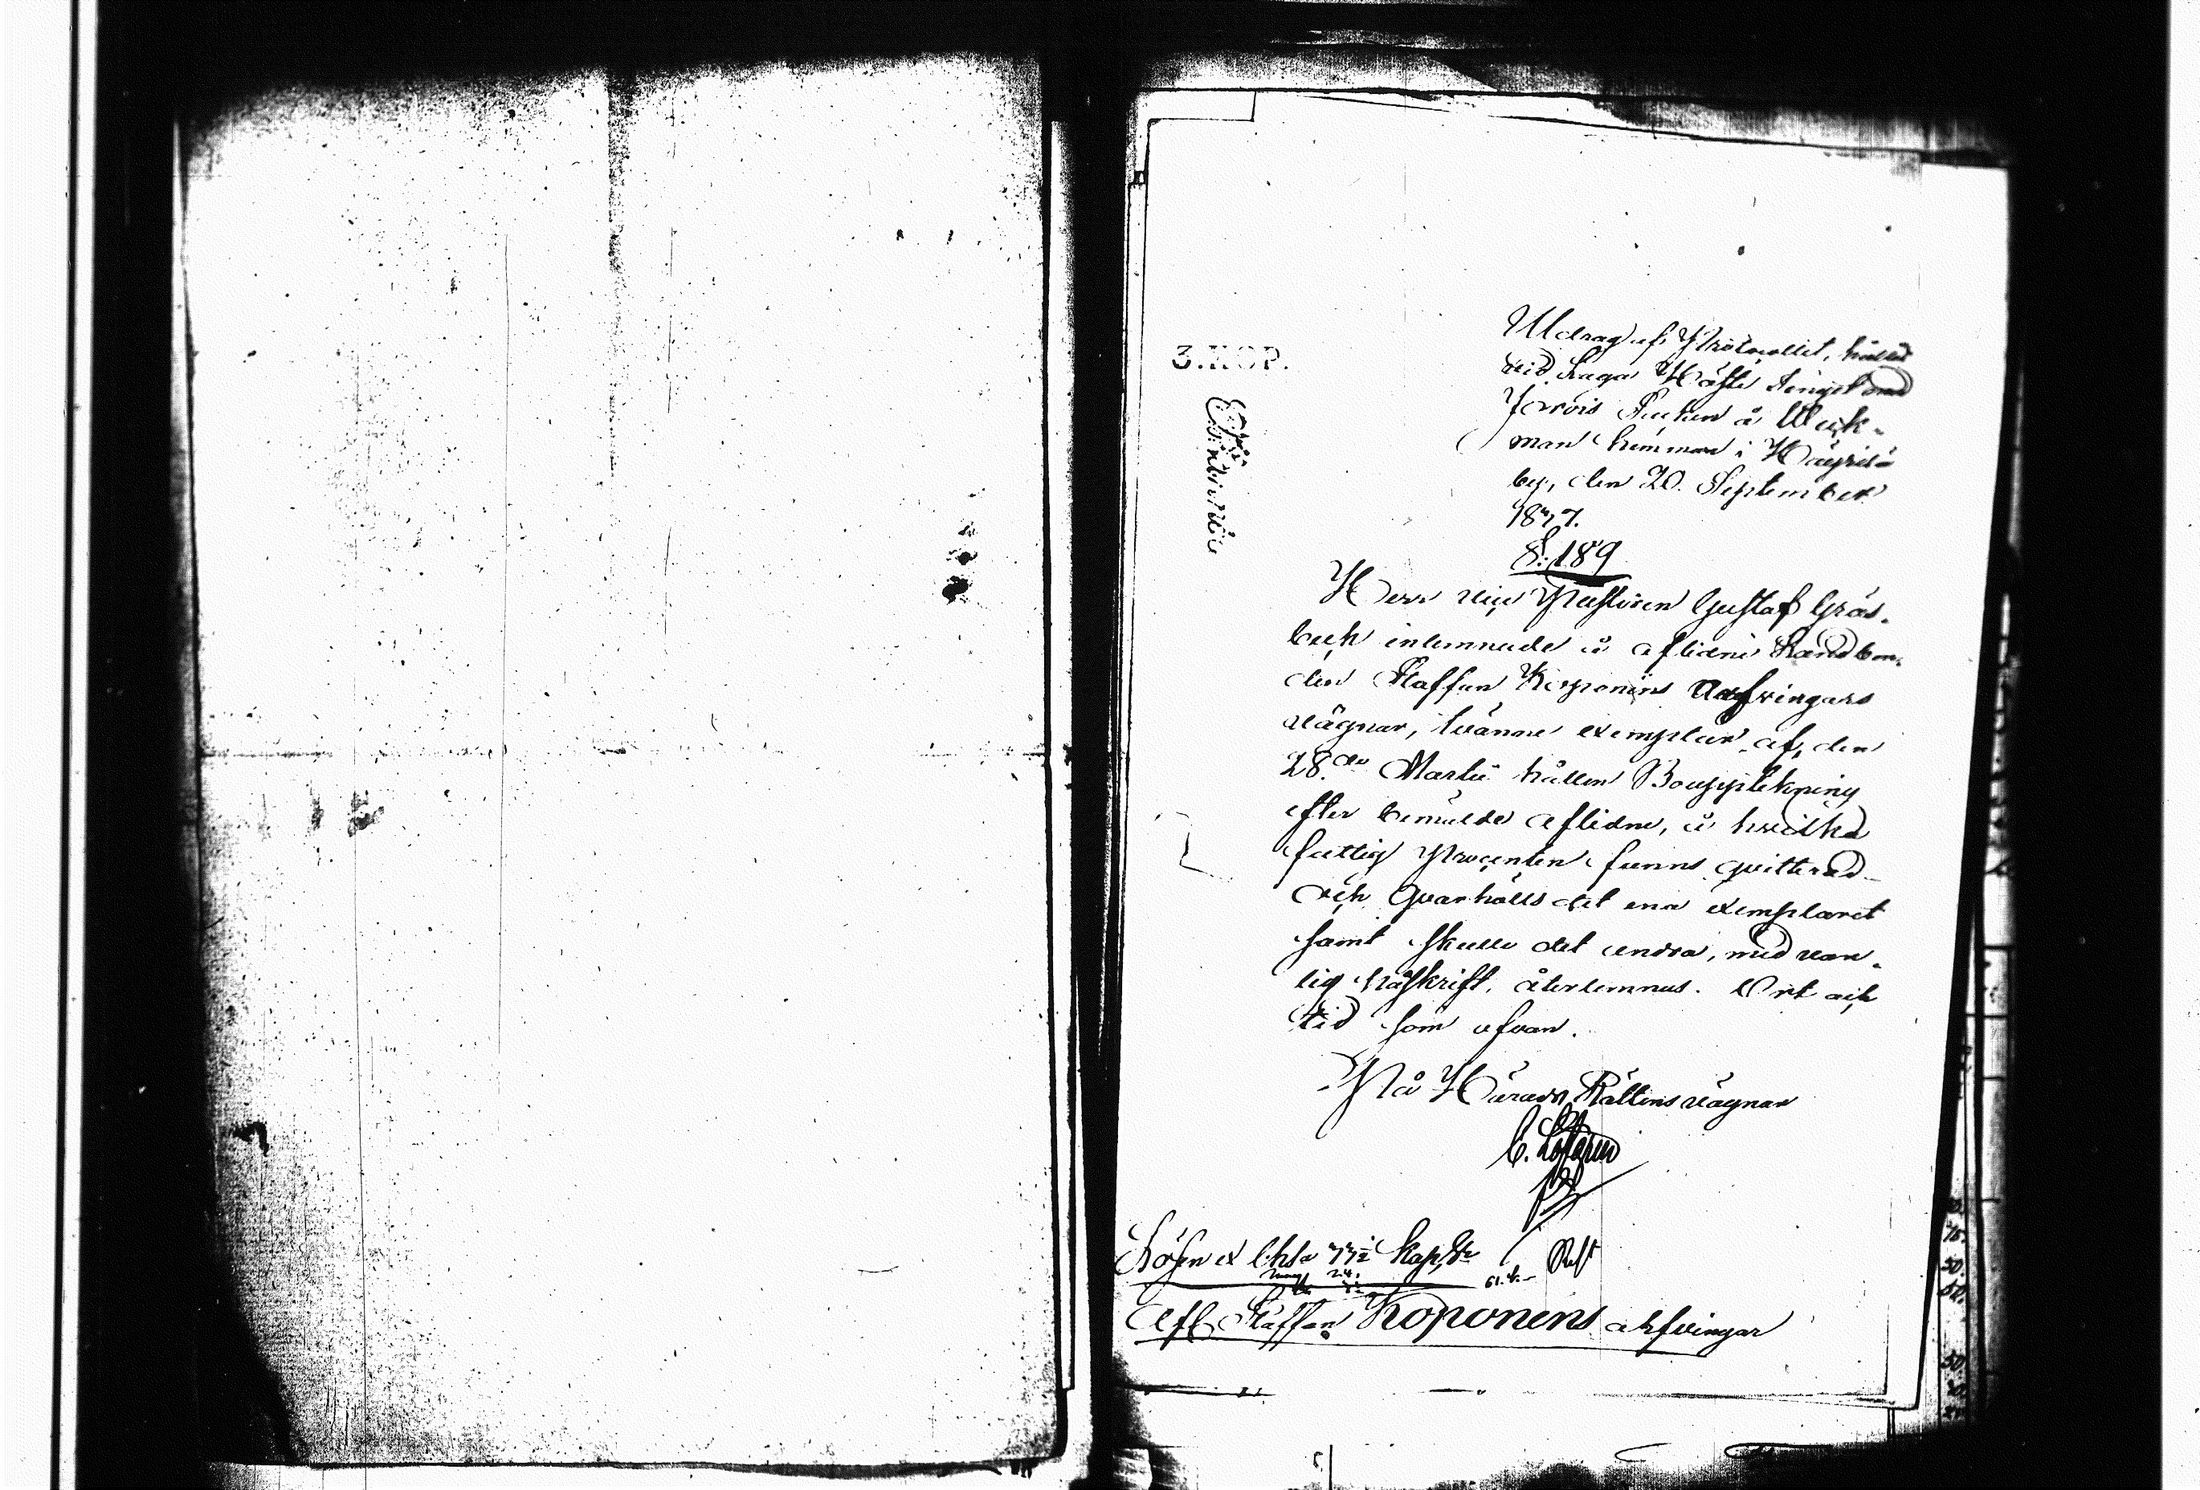 Utdrag af Protocollet, hållet
vid Laga Höste Tinget med
Jorois Socken å Wärk-
man hemman i Häyrilä
by, den 20. September
1847.
3. KOP.
§. 189
Herr vice Pastoren Gustaf Gräs-
beck inlemnade å aflidne Landbon-
den Staffan Koponens Arfvingars
vägnar, tvänne exemplar af, den
28.de Martii hållen Bouppteckning
efter bemälde aflidne, å hvilka
fattig Procenten funns qvitterad
och qvarhölls det ena exemplaret
samt skulle det andra, med van-
lig påskrift, återlemnas. Ort och
tid som ofvan.
På Härads Rättens vägnar
C. Löfgren
Lösen ex Chta kop. Sr
Afl. Staffan Koponens arfvingar